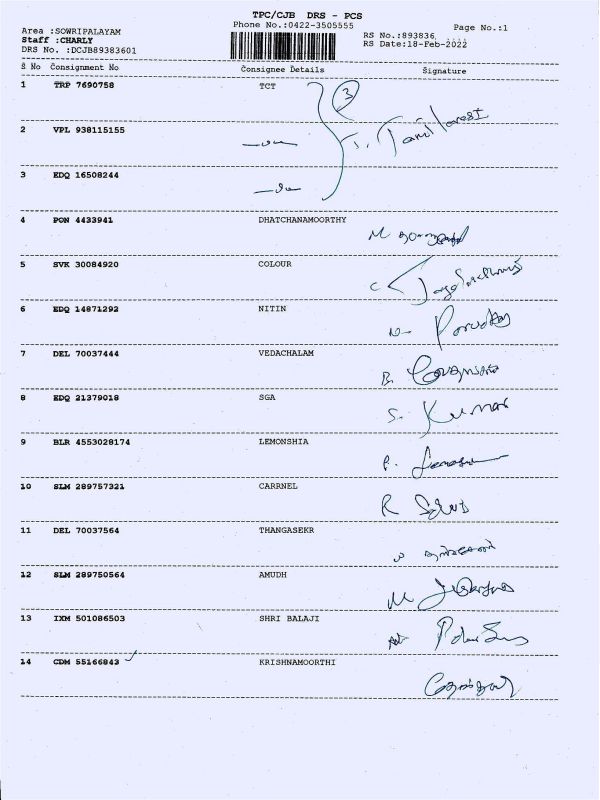 TPC/CJB DRS - PCS
Phone No.:0422-3505555
Page No.:1
Area :SOWRIPALAYAM
Staff :CHARLY
DRS No. :DCJB89383601
RS No.:893836
RS Date:18-Feb-2022
S No Consignment No Consignee Details Signature
1 TRP 7690758 TCT 3
2 VPL 938115155
3 EDQ 16508244
4 PON 4433941 DHATCHANAMOORTHY M
5 SVK 30084920 COLOUR C
6 EDQ 14871292 NITIN
7 DEL 70037444 VEDACHALAM B.
8 EDQ 21379018 SGA S. Kumar
9 BLR 4553028174 LEMONSHIA P.
10 SLM 289757321 CARRNEL R
11 DEL 70037564 THANGASEKR
12 SLM 289750564 AMUDH M
13 IXM 501086503 SHRI BALAJI
14 CDM 55166843 KRISHNAMOORTHI